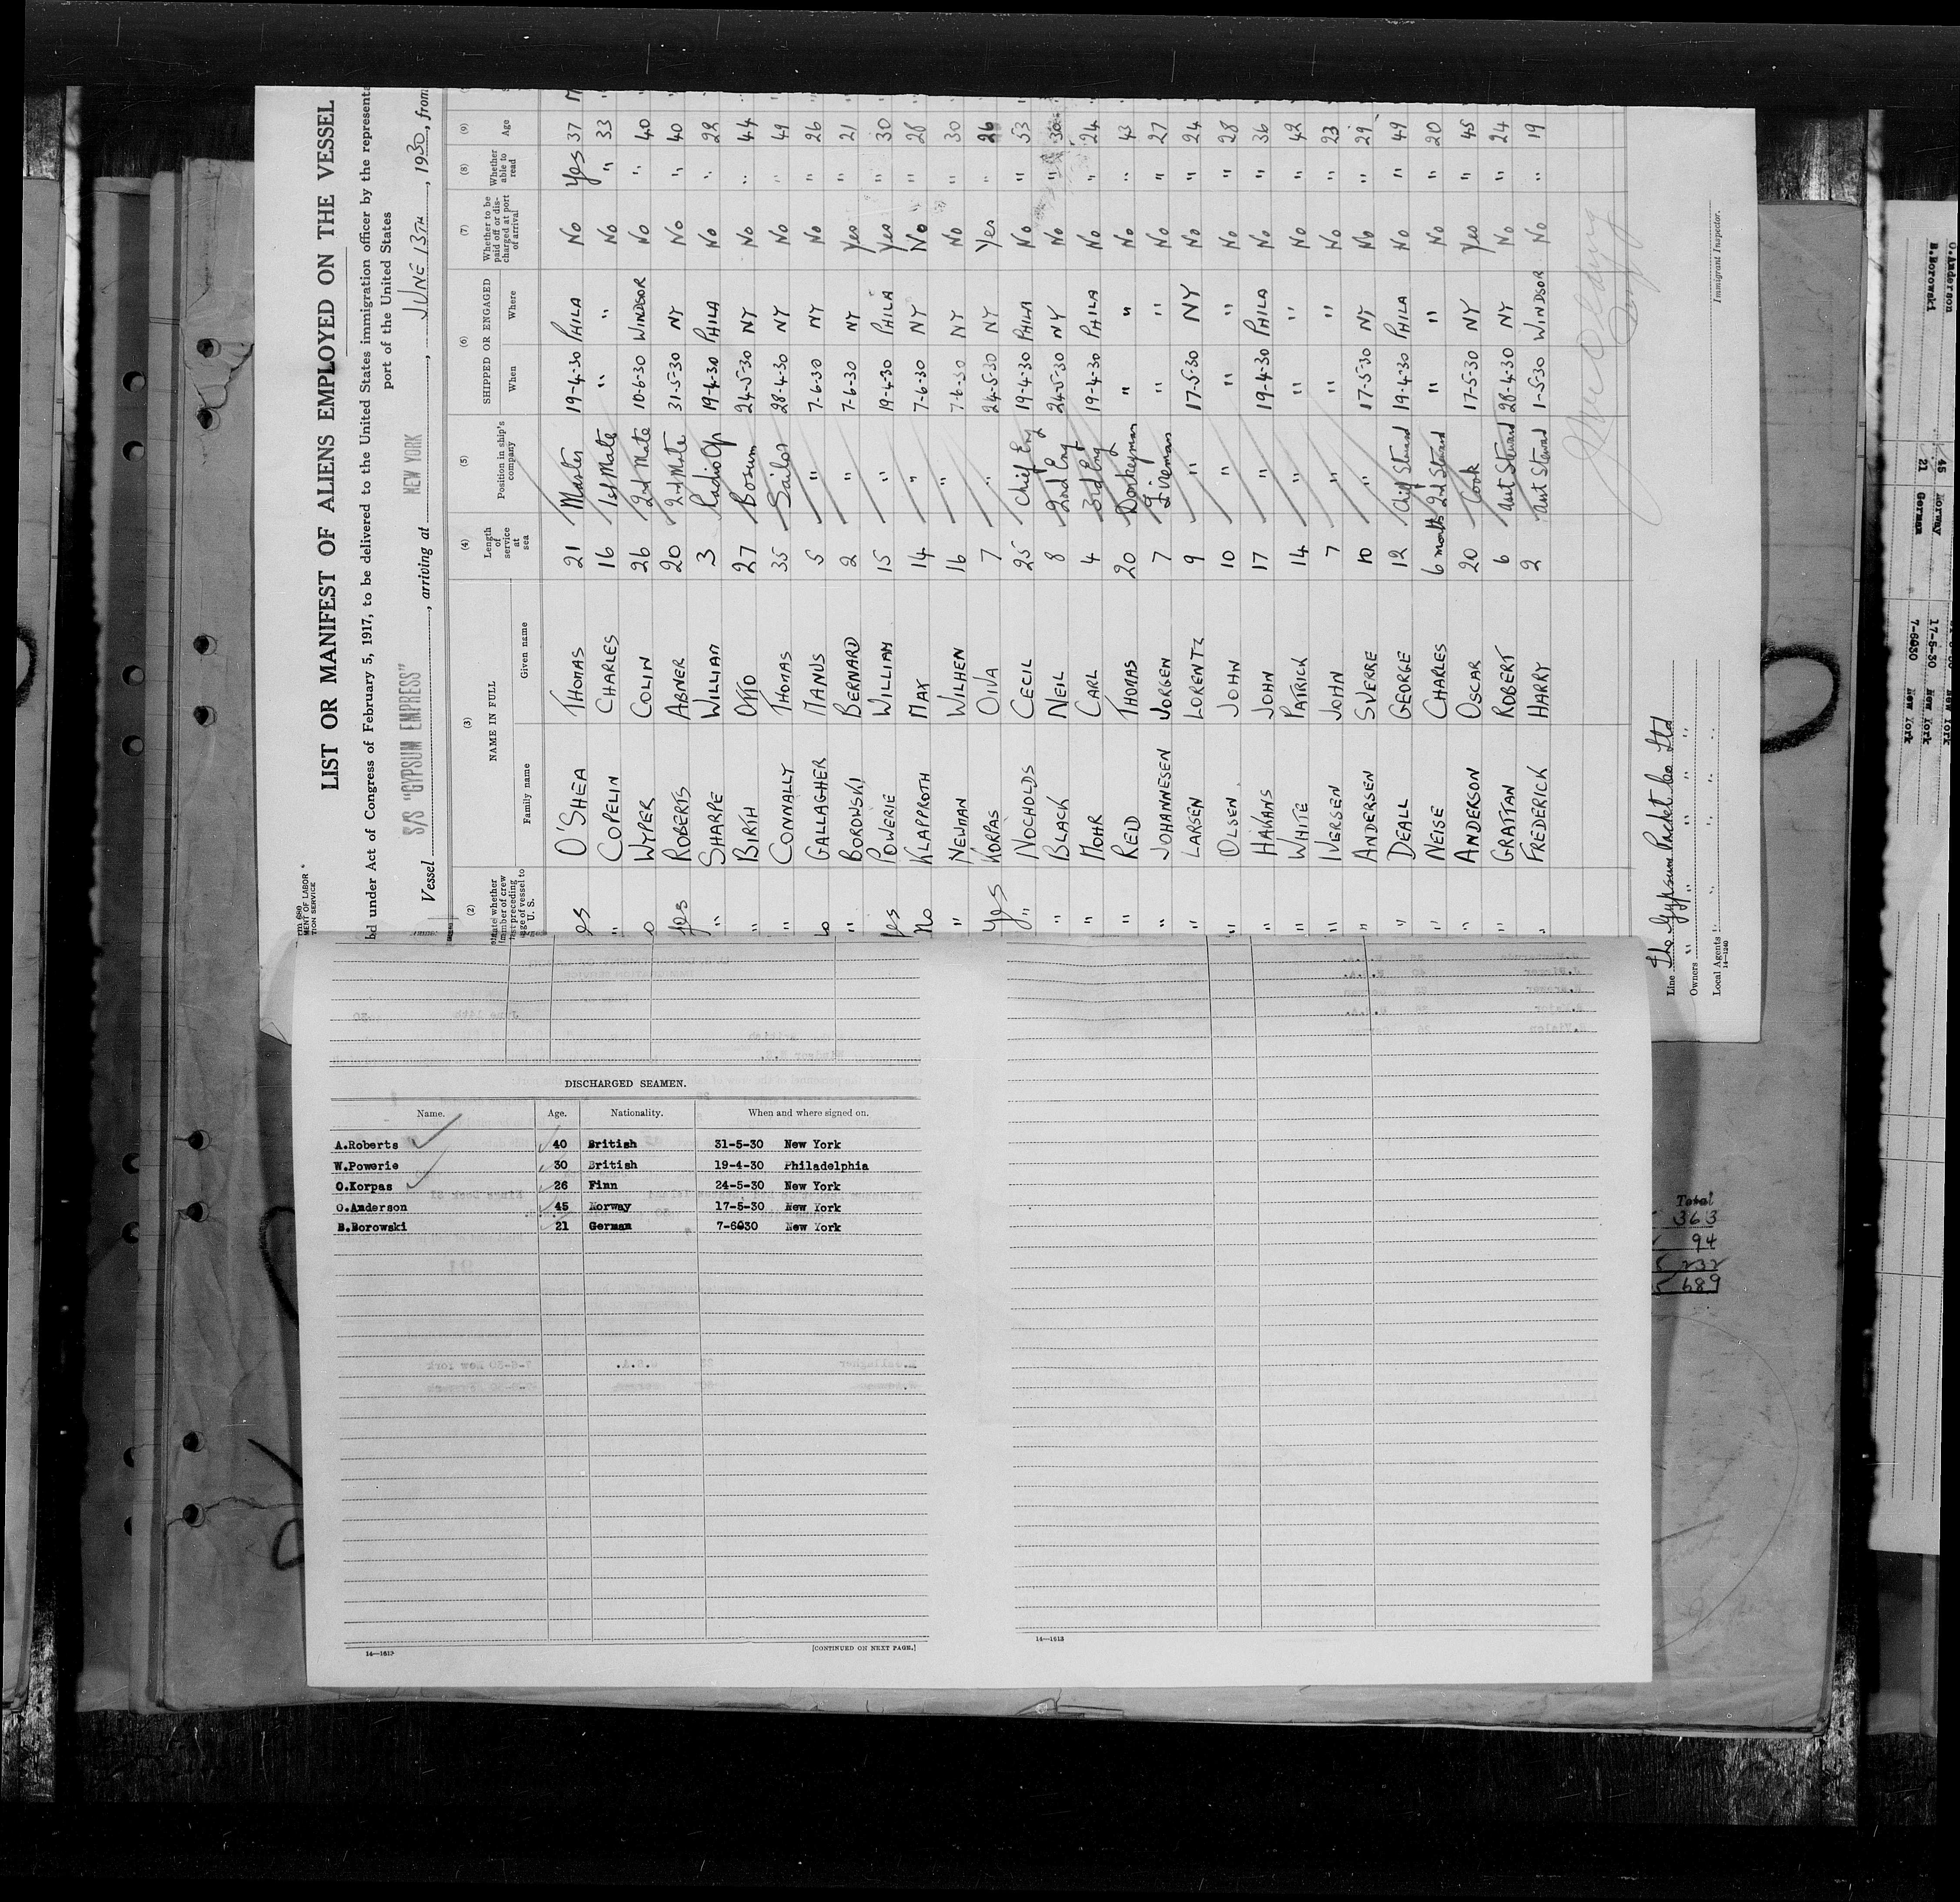 LIST OR MANIFEST OF ALIENS EMPLOYED ON THE VESSEL
under Act of Congress of February 5, 1917, to be delivered to the United States immigration officer by the representa
port of the United States
Vessel S/S "GYPSUM EMPRESS", arriving at NEW YORK, JUNE 13TH, 1930, from
MENT OF LABOR
TION SERVICE
(2) (3) (4) (5) (6) (7) (8) (9)
NAME IN FULL
Family name Given name
Length of service at sea
Position in ship's company
SHIPPED OR ENGAGED
When Where
Whether to be paid off or discharged at port of arrival
Whether able to read
Age
O'SHEA THOMAS 21 Master 19-4-30 PHILA No Yes 37
" COPELIN CHARLES 16 1st Mate " " No " 33
WYPER COLIN 26 2nd Mate 10-6-30 WINDSOR No " 40
Yes ROBERTS ABNER 20 2nd Mate 31-5-30 NY No " 40
" SHARPE WILLIAM 3 Radio Op 19-4-30 PHILA No " 28
" BIRTH OTTO 27 Bosun 24-5-30 NY No " 44
" CONNALLY THOMAS 35 Sailor 28-4-30 NY No " 49
GALLAGHER MANUS 5 " 7-6-30 NY No " 26
" BOROWSKI BERNARD 2 " 7-6-30 NY Yes " 21
Yes POWERIE WILLIAM 15 " 19-4-30 PHILA Yes " 30
No KLAPPROTH MAX 14 " 7-6-30 NY No " 28
" NEWMAN WILHEN 16 " 7-6-30 NY No " 30
Yes KORPAS OIVA 7 " 24-5-30 NY Yes " 26
" NOCHOLDS CECIL 25 Chief Eng 19-4-30 PHILA No " 53
" BLACK NEIL 8 2nd Eng 24-5-30 NY No " 30
" MOHR CARL 4 3rd Eng 19-4-30 PHILA No " 24
" REID THOMAS 20 Donkeyman " " No " 43
" JOHANNESEN JORGEN 7 Fireman " " No " 27
" LARSEN LORENTZ 9 " 17-5-30 NY No " 24
" OLSEN JOHN 10 " " " No " 28
" HAKANS JOHN 17 " 19-4-30 PHILA No " 36
" WHITE PATRICK 14 " " " No " 42
" IVERSEN JOHN 7 " " " No " 23
" ANDERSEN SVERRE 10 " 17-5-30 NY No " 29
" DEALL GEORGE 12 Chief Steward 19-4-30 PHILA No " 49
" NEISE CHARLES 6 months 2nd Steward " " No " 20
" ANDERSON OSCAR 20 Cook 17-5-30 NY Yes " 45
" GRATTAN ROBERT 6 Asst Steward 28-4-30 NY No " 24
" FREDERICK HARRY 2 Asst Steward 1-5-30 WINDSOR No " 19
Line The Gypsum Packet Co Ltd
Owners " " " " "
Local Agents " " " " "
14-1240
Immigrant Inspector.
DISCHARGED SEAMEN.
Name. Age. Nationality. When and where signed on.
A.Roberts 40 British 31-5-30 New York
W.Powerie 30 British 19-4-30 Philadelphia
O.Korpas 26 Finn 24-5-30 New York
O.Anderson 45 Norway 17-5-30 New York
B.Borowski 21 German 7-6030 New York
[CONTINUED ON NEXT PAGE.]
14—1613
14—1613
Total
363
94
232
689
O.Anderson 45 Norway 17-5-30 New York
B.Borowski 21 German 7-6030 New York